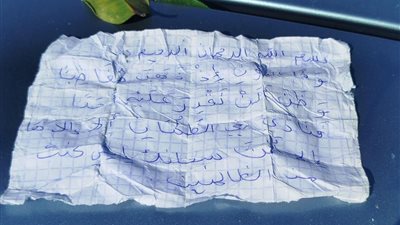 بسم الله الرحمان الرحيم
وذا النون إذ ذهب مغاضبا
لن نقدر عليه
فنادى في الظلمات أن لا إلاها
أنت سبحانك إني كنت
من الظالمين